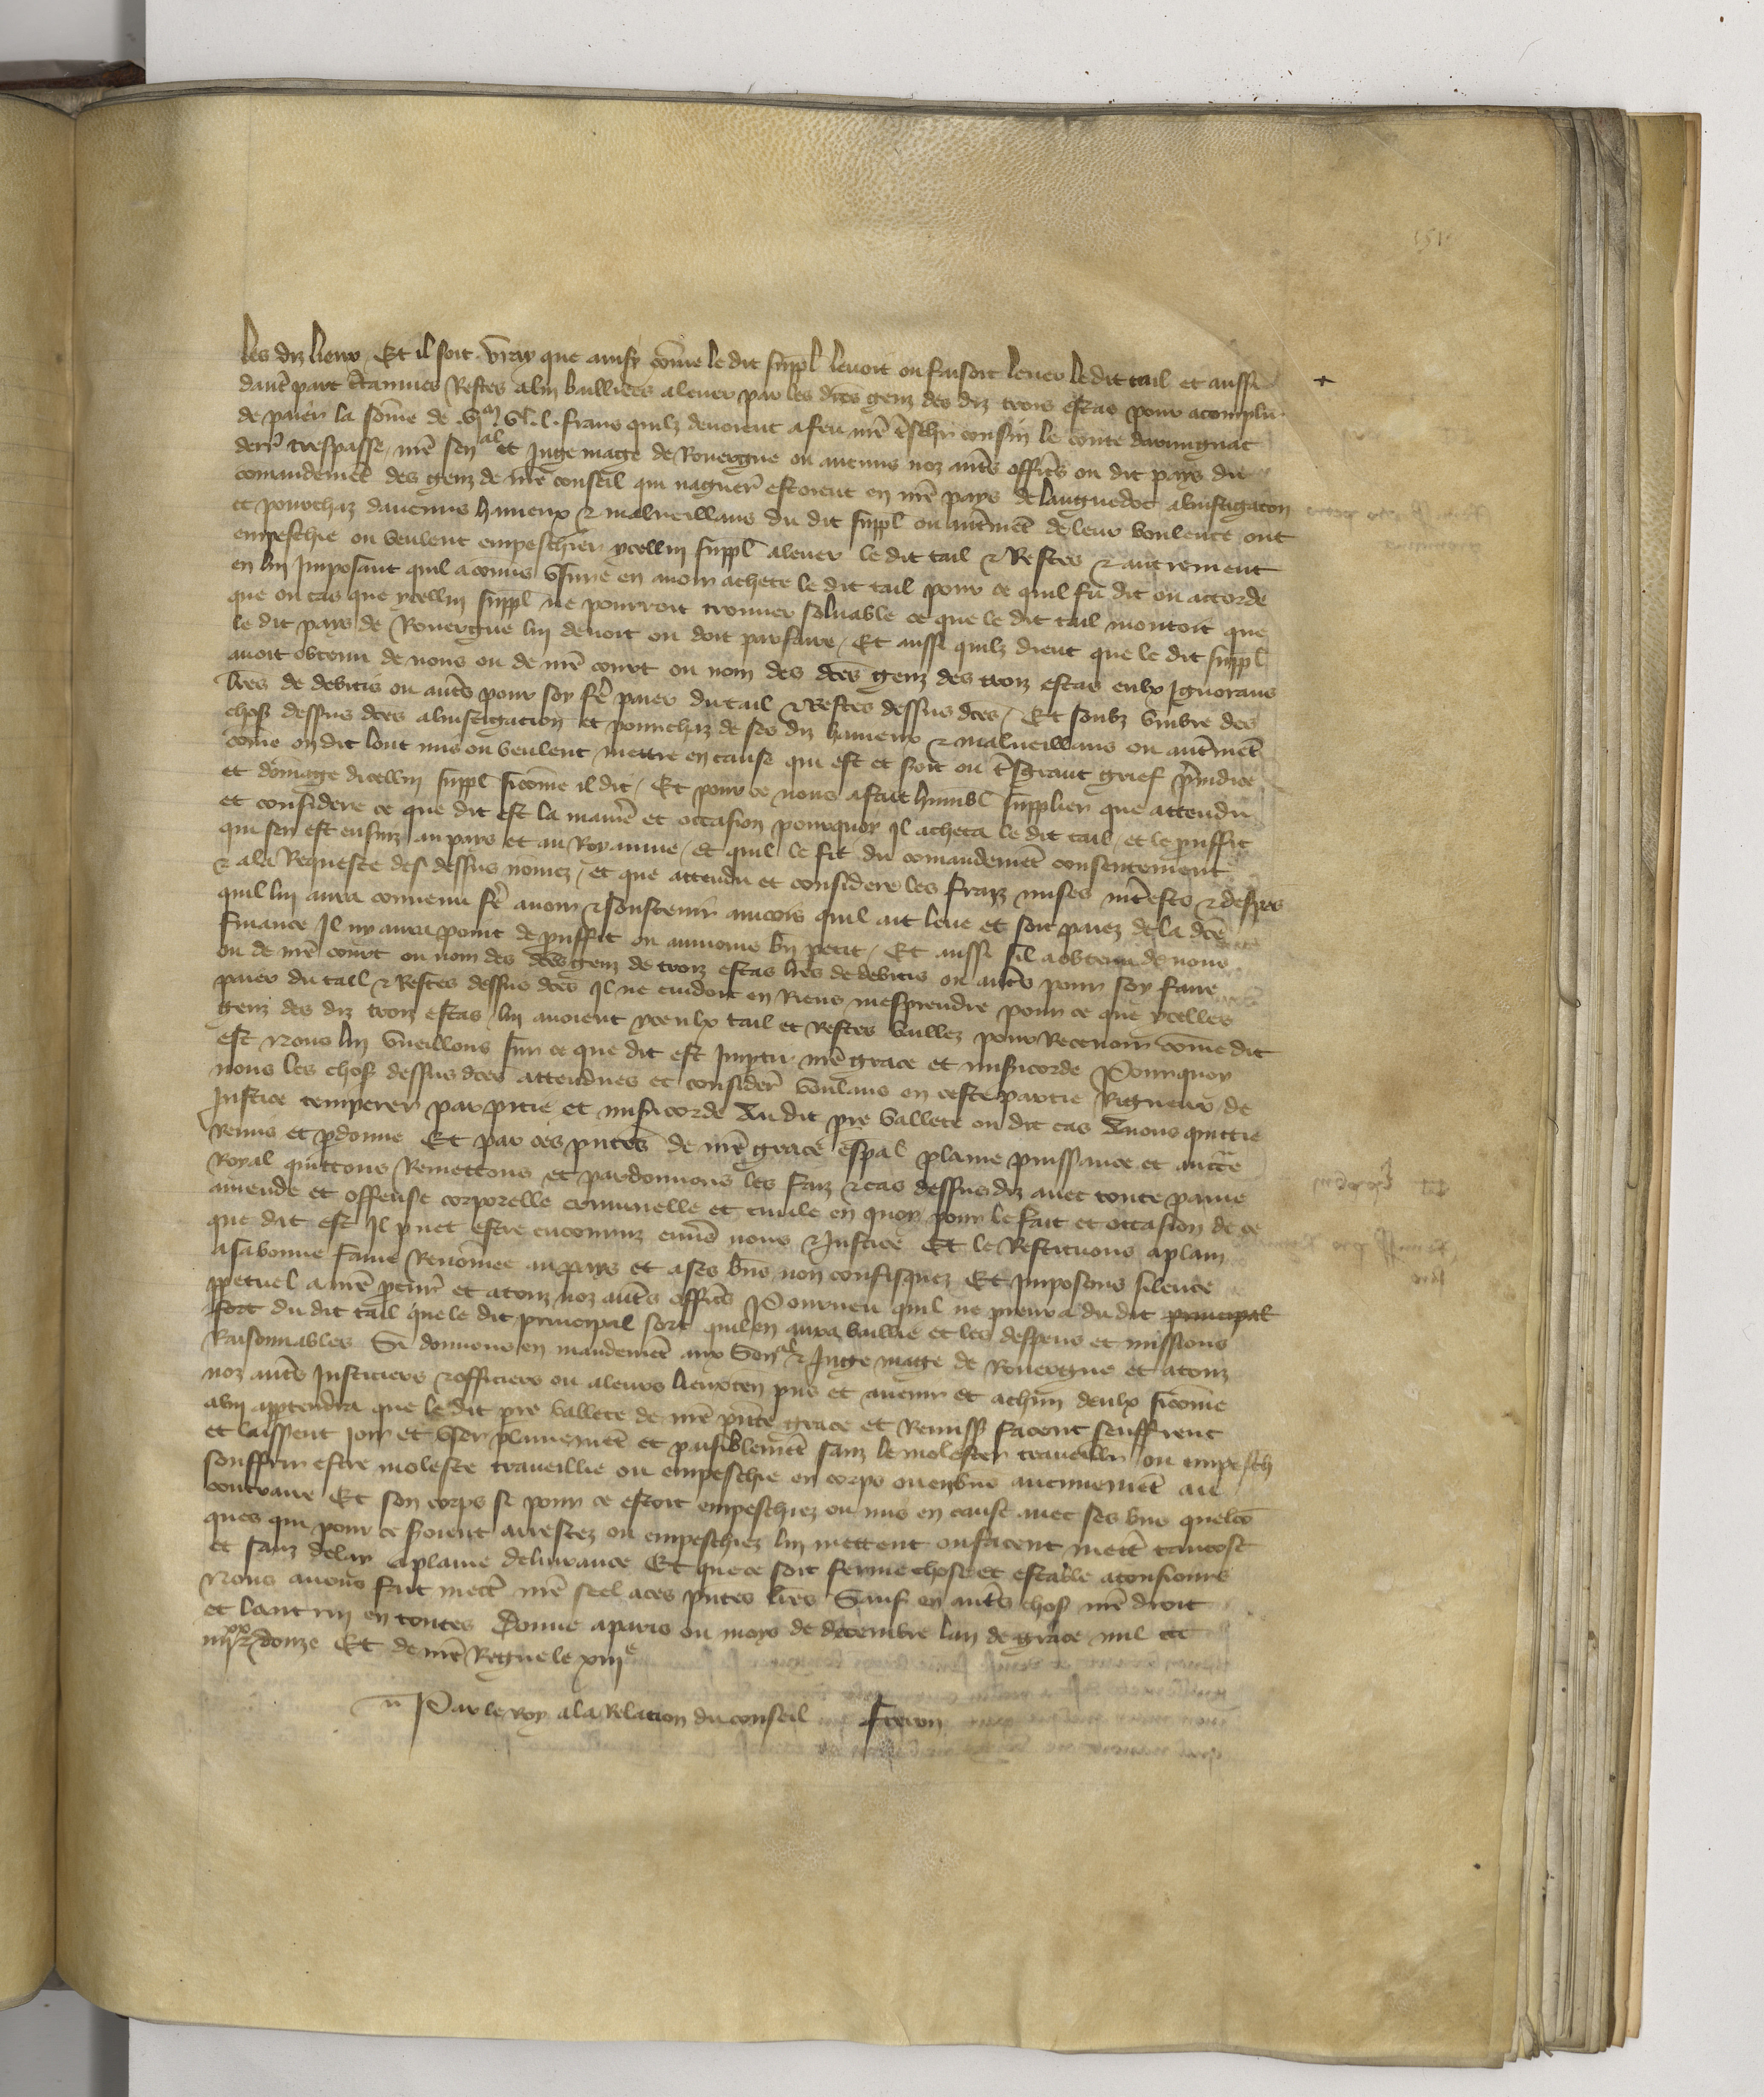 151
les diz lieux / Et il soit vray que ainsy cõme le dit suppl̃ levoit ou faisoit lever le dit tail et aussi
dautr̃ part c̃taines Restes a lui baillies a lever par les dc̃es genz des diz trois estas pour acomplir
de paier la sõme de .vjm vc. l. frans quilz devoient a feu nr̃e tr̃schr̃ cousin le conte darmignac
derr̃ trespasse nr̃e senal et Juge mage de Rouergue ou aucuns noz autr̃s offic̃s ou dit pays du
comandemẽt des genz de nr̃e conseil qui naguer̃ estoient en nr̃e pays de languedoc a linstigacõn
et pourchaz daucuns haineux & malveillans du dit suppl̃ ou autr̃mẽt de leur voulente ont
empeschie ou veulent empeschier ycellui suppl̃ a lever le dit tail & Restes & autrement
en lui Imposant quil a comis usure en avoir achete le dit tail pour ce quil fu dit ou accorde
que ou cas que ycellui suppl̃ ne pourroit trouver solvable ce que le dit tail montoit que
le dit pays de Rouergue lui devoit ou doit parfaire / Et aussi quilz dient que le dit suppl̃
avoit obtenu de nous ou de nr̃e court ou nom des dc̃es genz des troiz estas eulx Ignorans
lr̃es de debitis ou autr̃s pour soy fer̃ paier du tail & Restes dessus dc̃es / Et soubz umbre des
chos̃ dessus dc̃es a linstigacion et pourchaz de ses diz haineux & malveillans ou autr̃mẽt
cõme on dit lont mis ou veulent mettre en cause qui est et soit ou tr̃sgrant grief p̃iudice
et dõmage dicellui suppl̃ sicõme il dit / Et pour ce nous a fait humbl̃ supplier que attendu
et considere ce que dit est la manier̃ et occasion pourquoy Il acheta le dit tail / et le prouffit
qui sen est ensuiz au pays et au Royaume / Et quil le fit du comandemẽt consentement
& a la Requeste des dessus nõmez / et que attendu et considere les fraiz mises intr̃estz & despens
quil lui aura convenu fer̃ avoir & soustenir aincois quil ait leve et soit paiez de la dc̃e
finance Il ny aura point de prouffit ou aumoins bn̄ petit / Et aussi sil a obtenu de nous
ou de nr̃e court ou nom des dc̃es genz de troiz estas lr̃es de debitis ou autr̃s pour soy faire
paier du tail & Restes dessus dc̃es Il ne cuidoit en Riens mesprendre pour ce que ycelles
genz des diz troiz estas lui avoient yceulx tail et Restes bailliez pour Recevoir cõme dit
est Nous lui vueillons sur ce que dit est Impartir nr̃e grace et misericorde Pourquoy
nous les chos̃ dessus dc̃es attendues et consider̃ voulans en ceste partie Rigueur de
Justice temperer par pitie et misericorde Au dit pr̃e vallete ou dit cas Avons quittie
Remis et p̱donne Et par ces p̃ntes de nr̃e grace esp̃al plaine puissance et auctr̃e
Royal quittons Remettons et pardonnons les faiz & cas dessusdiz avec toute paine
amende et offense corporelle criminelle et civile en quoy pour le fait et occasion de ce
que dit est Il puet estre encouruz envers nous & Justice Et le Restituons a plain
a sa bonne fame Renõmee au pays et a ses bn̄s non confisquez Et Imposons silence
p̱petuel a nr̃e p̱cur̃ et a touz noz autr̃s offic̃s Pourveu quil ne prenra du dit principal
sort du dit tail que le dit principal sort quil en aura baillie et les despens et missions
Raisonnables Si donnons en mandemẽt aux Senal & Juge mage de Rouergue et a touz
noz autr̃s Justiciers & officiers ou a leurs lieuxten p̃ns et avenir et a chũn deulx sicõme
a lui appartendra que le dit pr̃e vallete de nr̃e p̃nte grace et Remiss̃ facent seuffrent
et laissent joir et user plainemẽt et paisiblemẽt sanz le molester traveillier ou empesch
souffrir estre moleste traveillie ou empeschie en corps ou en bn̄s aucunemẽt au
contraire Et son corps se pour ce estoit empeschiez ou mis en cause avec ses bn̄s quelcõ
ques qui pour ce soient arrestez ou empeschiez lui mettent ou facent mettr̃ tantost
et sanz delay a plaine delivrance Et que ce soit ferme chose et estable a tousiours
Nous avons fait mectr̃ nr̃e seel a ces p̃ntes lr̃es Sauf en autr̃s chos̃ nr̃e droit
et lautrui en toutes Donne a paris ou moys de decembre lan de grace mil ccc
iiijxx & douze Et de nr̃e Regne le xiije
Par le Roy a la Relation du conseil Freron